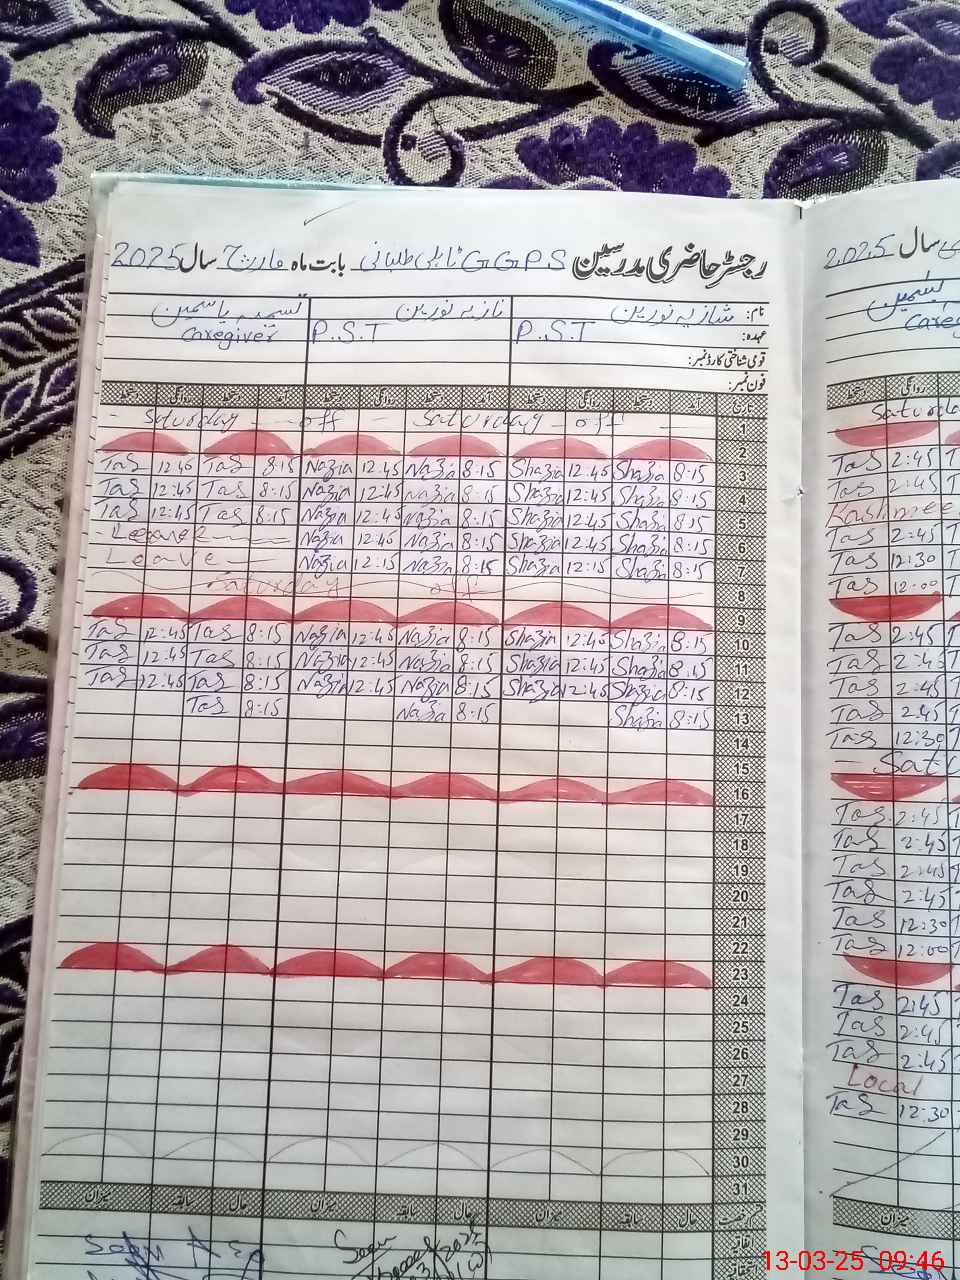 رجسٹر حاضری مدرسین GGPS ٹاہلی طلبانی بابت ماہ مارچ سال 2025
نام: شازیہ نورین نازیہ نورین تسمیہ یاسمین
عہدہ: P.S.T P.S.T Caregiver
قومی شناختی کارڈ نمبر:
فون نمبر:
تاریخ آمد دستخط روانگی دستخط آمد دستخط روانگی دستخط آمد دستخط روانگی دستخط
1 - Saturday - off - Saturday - off -
2
Tas 12:45 Tas 8:15 Nazia 12:45 Nazia 8:15 Shazia 12:45 Shazia 8:15 3
Tas 12:45 Tas 8:15 Nazia 12:45 Nazia 8:15 Shazia 12:45 Shazia 8:15 4
Tas 12:45 Tas 8:15 Nazia 12:45 Nazia 8:15 Shazia 12:45 Shazia 8:15 5
- Leave Nazia 12:45 Nazia 8:15 Shazia 12:45 Shazia 8:15 6
Leave Nazia 12:15 Nazia 8:15 Shazia 12:15 Shazia 8:15 7
Saturday off 8
9
Tas 12:45 Tas 8:15 Nazia 12:45 Nazia 8:15 Shazia 12:45 Shazia 8:15 10
Tas 12:45 Tas 8:15 Nazia 12:45 Nazia 8:15 Shazia 12:45 Shazia 8:15 11
Tas 12:45 Tas 8:15 Nazia 12:45 Nazia 8:15 Shazia 12:45 Shazia 8:15 12
Tas 8:15 Nazia 8:15 Shazia 8:15 13
14
15
16
17
18
19
20
21
22
23
24
25
26
27
28
29
30
31
حال سابقہ میزان حال سابقہ میزان حال سابقہ میزان
اتفاقیہ
Seen
Seen
سال 2025
Careg
دستخط روانگی
Saturda
Tas 2:45
Tas 2:45
Kashmee
Tas 2:45
Tas 12:30
Tas 12:00
Tas 2:45
Tas 2:45
Tas 2:45
Tas 2:45
Tas 12:30
- Satu
Tas 2:45
Tas 2:45
Tas 2:45
Tas 2:45
Tas 12:30
Tas 12:00
Tas 2:45
Tas 2:45
Tas 2:45
Local
Tas 12:30
میزان
13-03-25 09:46